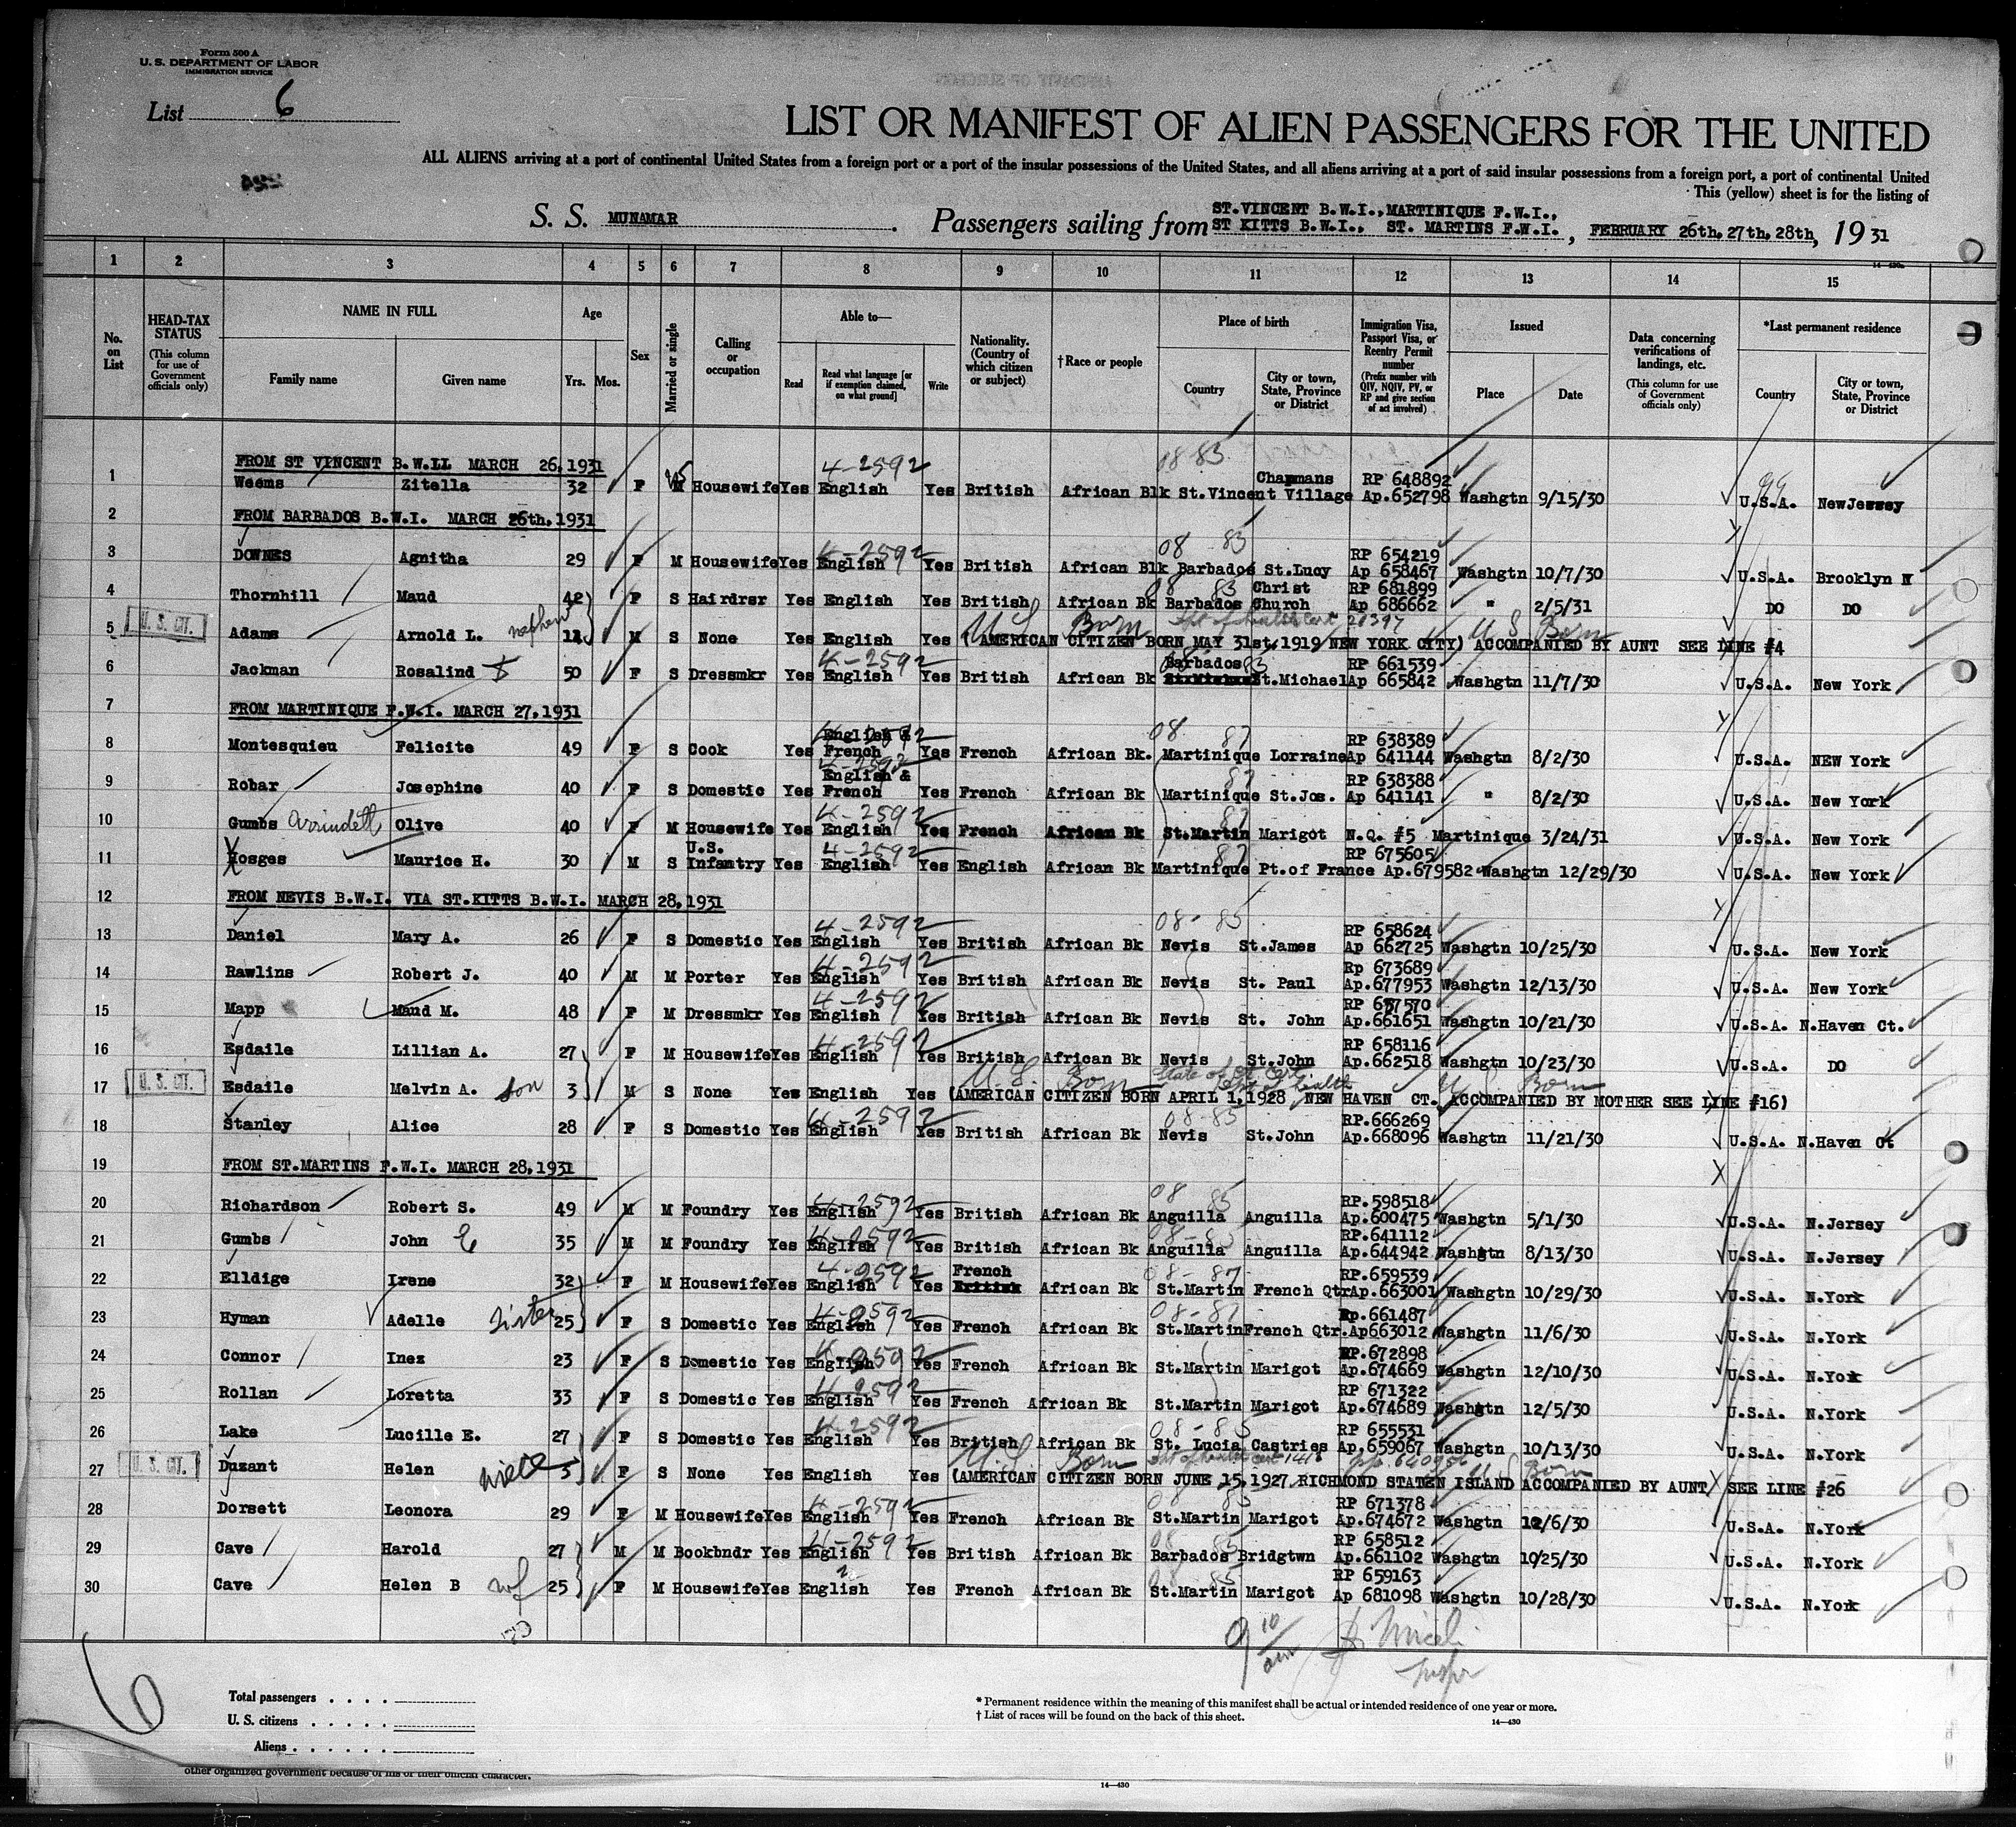 Form 500 A
U. S. DEPARTMENT OF LABOR
IMMIGRATION SERVICE
List 6
LIST OR MANIFEST OF ALIEN PASSENGERS FOR THE UNITED
ALL ALIENS arriving at a port of continental United States from a foreign port or a port of the insular possessions of the United States, and all aliens arriving at a port of said insular possessions from a foreign port, a port of continental United
This (yellow) sheet is for the listing of
S. S. MUNAMAR Passengers sailing from ST.VINCENT B.W.I.,MARTINIQUE F.W.I., ST KITTS B.W.I., ST. MARTINS F.W.I. , FEBRUARY 26th,27th,28th, 19 31
14-430
1 2 3 4 5 6 7 8 9 10 11 12 13 14 15
No. on List
HEAD-TAX STATUS (This column for use of Government officials only)
NAME IN FULL
Family name Given name
Age
Yrs. Mos.
Sex
Married or single
Calling or occupation
Able to—
Read Read what language [or if exemption claimed, on what ground] Write
Nationality. (Country of which citizen or subject)
†Race or people
Place of birth
Country City or town, State, Province or District
Immigration Visa, Passport Visa, or Reentry Permit number (Prefix number with QIV, NQIV, PV, or RP and give section of act involved)
Issued
Place Date
Data concerning verifications of landings, etc. (This column for use of Government officials only)
*Last permanent residence
Country City or town, State, Province or District
FROM ST VINCENT B.W.II MARCH 26,1931
1 Weems Zitella 32 F M Housewife Yes English 4-2592 Yes British African Blk St.Vincent Chapmans Village 08 83 RP 648892 Ap.652798 Washgtn 9/15/30 U.S.A. NewJersey
2 FROM BARBADOS B.W.I. MARCH 26th,1931
3 DOWNES Agnitha 29 F M Housewife Yes English 4-2592 Yes British African Blk Barbados St.Lucy 08 83 RP 654219 Ap 658467 Washgtn 10/7/30 U.S.A. Brooklyn N
4 Thornhill Maud 42 F S Hairdrsr Yes English Yes British African Bk Barbados Christ Church 08 83 RP 681899 Ap 686662 " 2/5/31 DO DO
5 U. S. CIT. Adams Arnold L. nephew M S None Yes English Yes (AMERICAN CITIZEN BORN MAY 31st,1919 NEW YORK CITY) ACCOMPANIED BY AUNT SEE LINE #4 U S Born
6 Jackman Rosalind 50 F S Dressmkr Yes English 4-2592 Yes British African Bk Barbados St.Michael RP 661539 Ap 665842 Washgtn 11/7/30 U.S.A. New York
7 FROM MARTINIQUE F.W.I. MARCH 27,1931
8 Montesquieu Felicite 49 F S Cook Yes English & French Yes French African Bk. Martinique Lorraine 08 87 RP 638389 Ap 641144 Washgtn 8/2/30 U.S.A. NEW York
9 Robar Josephine 40 F S Domestic Yes English & French 4-2592 Yes French African Bk Martinique St.Jos. 87 RP 638388 Ap 641141 " 8/2/30 U.S.A. New York
10 Gumbs Arrindett Olive 40 F M Housewife Yes English 4-2592 Yes French African Bk St.Martin Marigot 87 N.Q. #5 Martinique 3/24/31 U.S.A. New York
11 Hosges Maurice H. 30 M S U.S. Infantry Yes English 4-2592 Yes English African Bk Martinique Pt.of France 87 RP 675605 Ap.679582 Washgtn 12/29/30 U.S.A. New York
12 FROM NEVIS B.W.I. VIA ST.KITTS B.W.I. MARCH 28,1931
13 Daniel Mary A. 26 F S Domestic Yes English 4-2592 Yes British African Bk Nevis St.James 08-85 RP 658624 Ap 662725 Washgtn 10/25/30 U.S.A. New York
14 Rawlins Robert J. 40 M M Porter Yes English 4-2592 Yes British African Bk Nevis St. Paul Rp 673689 Ap.677953 Washgtn 12/13/30 U.S.A. New York
15 Mapp Maud M. 48 F M Dressmkr Yes English 4-2592 Yes British African Bk Nevis St. John RP 657570 Ap.661651 Washgtn 10/21/30 U.S.A. N.Haven Ct.
16 Esdaile Lillian A. 27 F M Housewife Yes English 4-2592 Yes British African Bk Nevis St.John RP 658116 Ap.662518 Washgtn 10/23/30 U.S.A. DO
17 U. S. CIT. Esdaile Melvin A. son 3 M S None Yes English Yes (AMERICAN CITIZEN BORN APRIL 1,1928 NEW HAVEN CT. ACCOMPANIED BY MOTHER SEE LINE #16) U.S. Born
18 Stanley Alice 28 F S Domestic Yes English 4-2592 Yes British African Bk Nevis St.John 08-85 RP.666269 Ap.668096 Washgtn 11/21/30 U.S.A. N.Haven Ct
19 FROM ST.MARTINS F.W.I. MARCH 28,1931
20 Richardson Robert S. 49 M M Foundry Yes English 4-2592 Yes British African Bk Anguilla Anguilla 08 85 RP.598518 Ap.600475 Washgtn 5/1/30 U.S.A. N.Jersey
21 Gumbs John E 35 M M Foundry Yes English 4-2592 Yes British African Bk Anguilla Anguilla 08-85 RP.641112 Ap.644942 Washgtn 8/13/30 U.S.A. N.Jersey
22 Elldige Irene 32 F M Housewife Yes English 4-2592 Yes French African Bk St.Martin French Qtr 08-87 RP.659539 Ap.663001 Washgtn 10/29/30 U.S.A. N.York
23 Hyman Adelle Sister 25 F S Domestic Yes English 4-2592 Yes French African Bk St.Martin French Qtr. 08-87 Rp.661487 Ap663012 Washgtn 11/6/30 U.S.A. N.York
24 Connor Inez 23 F S Domestic Yes English 4-2592 Yes French African Bk St.Martin Marigot RP.672898 Ap.674669 Washgtn 12/10/30 U.S.A. N.York
25 Rollan Loretta 33 F S Domestic Yes English 4-2592 Yes French African Bk St.Martin Marigot RP 671322 Ap.674689 Washgtn 12/5/30 U.S.A. N.York
26 Lake Lucille E. 27 F S Domestic Yes English 4-2592 Yes British African Bk St. Lucia Castries 08-85 RP 655531 Ap.659067 Washgtn 10/13/30 U.S.A. N.York
27 U. S. CIT. Duzant Helen niece 3 F S None Yes English Yes (AMERICAN CITIZEN BORN JUNE 15,1927 RICHMOND STATEN ISLAND ACCOMPANIED BY AUNT SEE LINE #26 U S Born
28 Dorsett Leonora 29 F M Housewife Yes English 4-2592 Yes French African Bk St.Martin Marigot RP 671378 Ap.674672 Washgtn 12/6/30 U.S.A. N.York
29 Cave Harold 27 M M Bookbndr Yes English 4-2592 Yes British African Bk Barbados Bridgtwn RP 658512 Ap.661102 Washgtn 10/25/30 U.S.A. N.York
30 Cave Helen B wf 25 F M Housewife Yes English Yes French African Bk St.Martin Marigot RP 659163 Ap 681098 Washgtn 10/28/30 U.S.A. N.York
9 10 am
Inspr
6
Total passengers . . . .
U. S. citizens . . . . .
Aliens . . . . . .
* Permanent residence within the meaning of this manifest shall be actual or intended residence of one year or more.
† List of races will be found on the back of this sheet.
14—430
other organized government because of his or their official character.
14—430